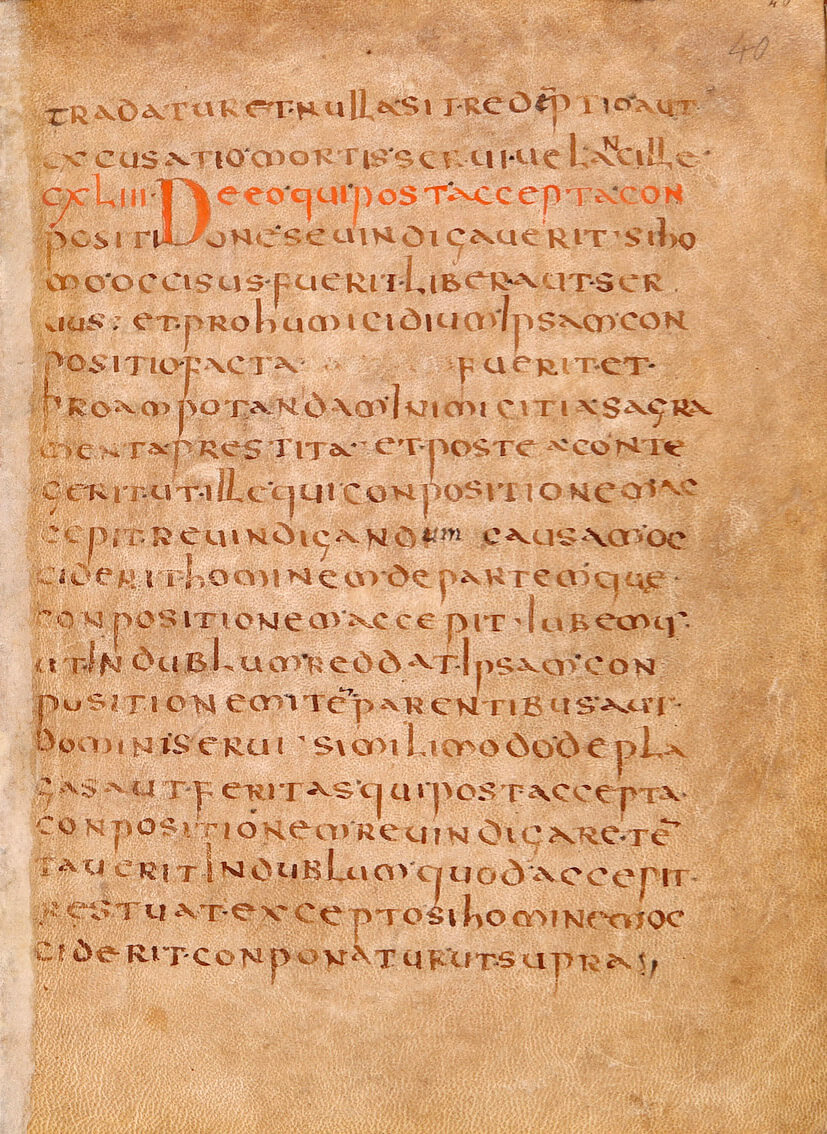 40
tradatur et nulla sit redēptio aut
excusatio mortis serui uel ancille
cxliii De eo qui post accepta con
positione se uindiçauerit si ho
mo occisus fuerit liber aut ser
uus: et pro humicidium ipsam con
positio facta fuerit et
pro ampotandam inimicitia sagra
menta prestita et postea conte
gerit ut ille qui conpositionem ac
cepit reuindiçandum causam oc
ciderit hominem de partem que
conpositionem accepit iubemus
ut in dublum reddat ipsam con
positionem itē parentibus aut
domini serui simili modo de pla
gas aut feritas qui post accepta
conpositionem reuindiçare tē
tauerit in dublum quod accepit
restuat excepto si hominem oc
ciderit conponatur ut supra